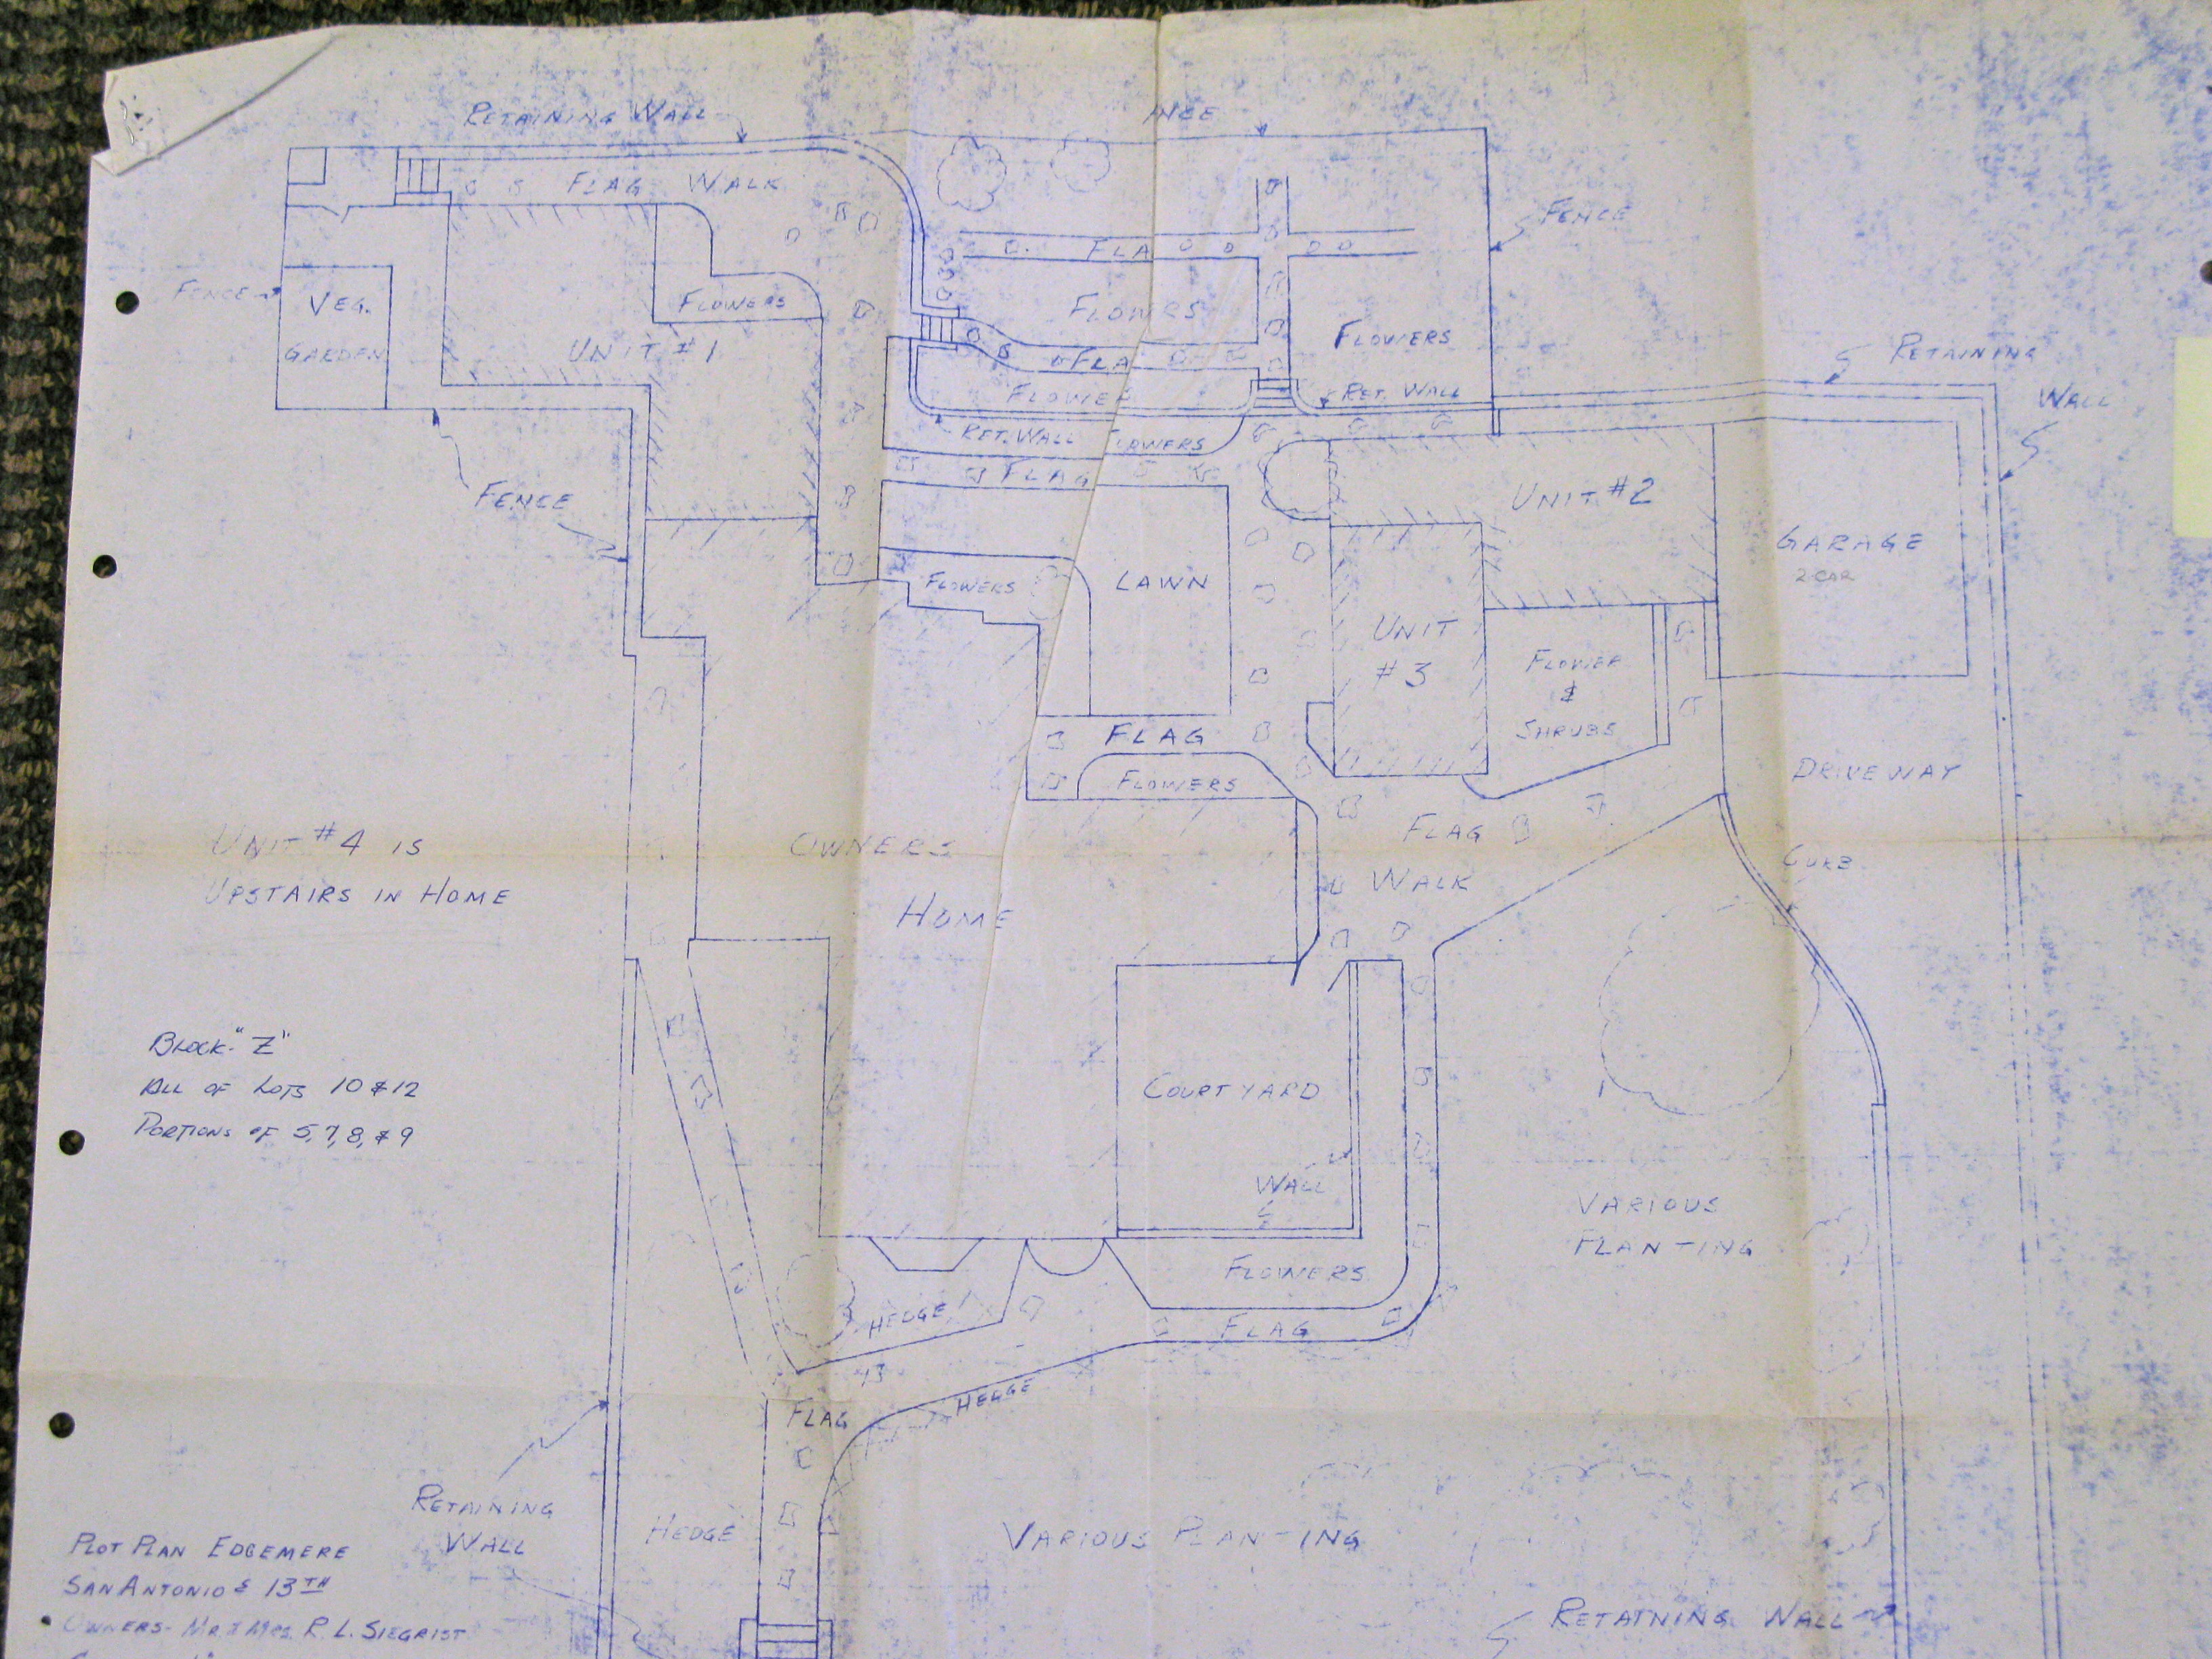 RETAINING WALL
NCE
FLAG WALK
FENCE
FLA
FENCE
VEG.
GARDEN
FLOWERS
FLOWRS
FLOWERS
UNIT #1
FLA
RETAINING
WALL
FLOWER
RET. WALL
RET. WALL
FLOWERS
FLAG
FENCE
UNIT #2
GARAGE
2 CAR
FLOWERS
LAWN
UNIT
#3
FLOWER
&
SHRUBS
FLAG
FLOWERS
DRIVEWAY
FLAG
WALK
CURB
UNIT #4 IS
UPSTAIRS IN HOME
OWNERS
HOME
BLOCK "Z"
ALL OF LOTS 10 & 12
PORTIONS OF 5, 7, 8, & 9
COURTYARD
WALL
VARIOUS
PLAN-ING
FLOWERS
HEDGE
FLAG
HEDGE
FLAG
RETAINING
WALL
HEDGE
VARIOUS PLAN-ING
RETAINING WALL
PLOT PLAN EDGEMERE
SAN ANTONIO & 13TH
OWNERS- MR & MRS. R. L. SIEGRIST